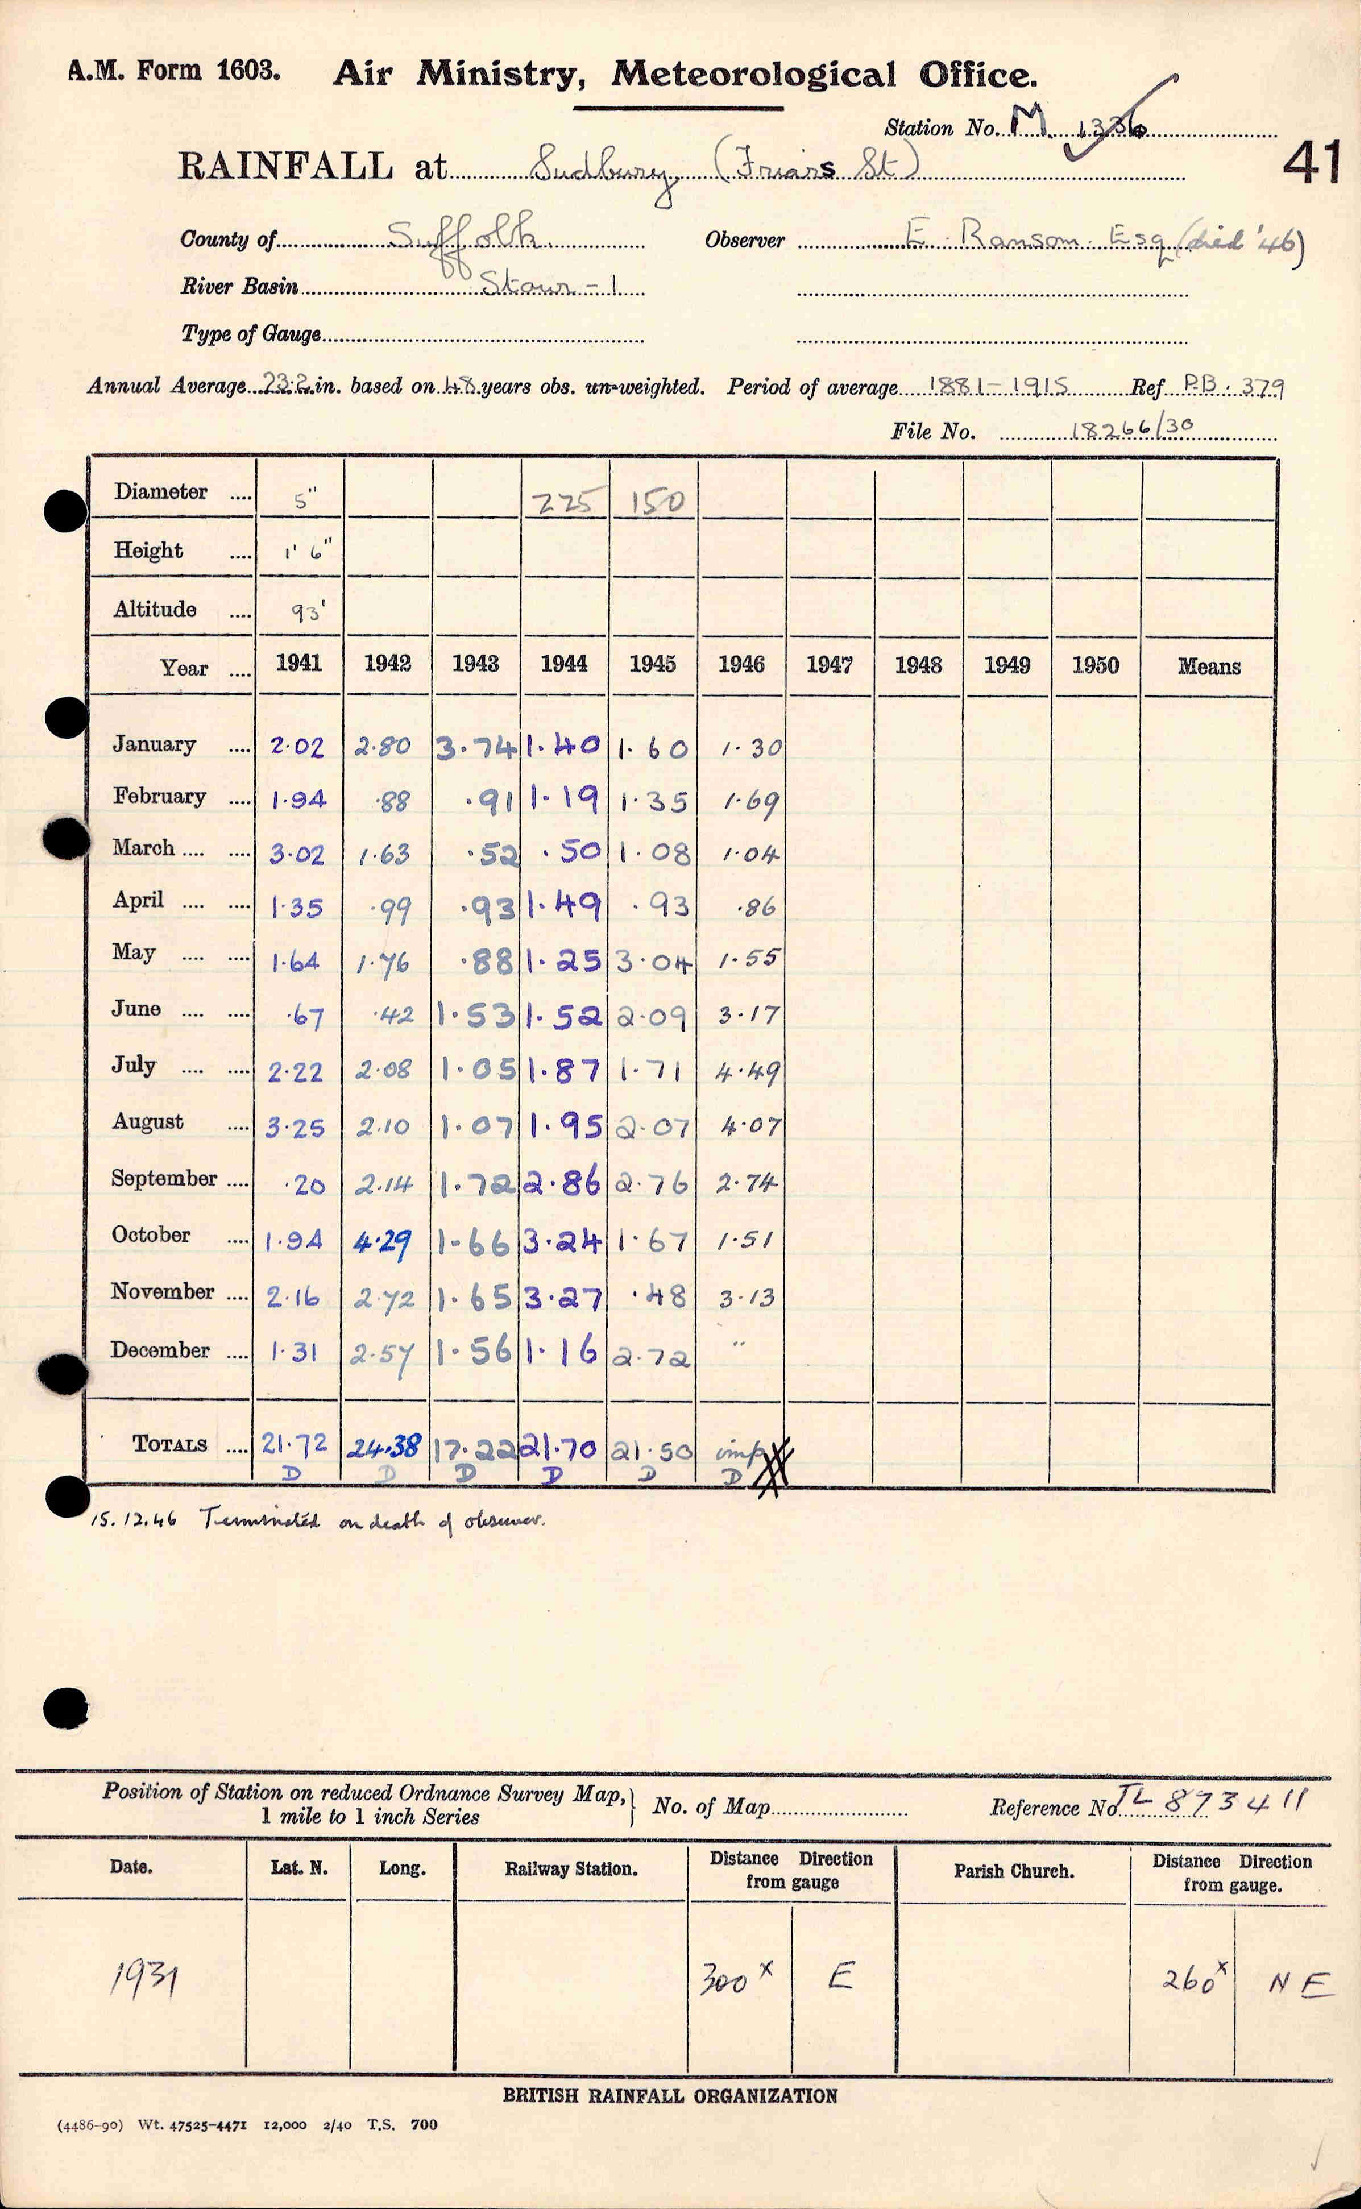 A.M. Form 1603. Air Ministry, Meteorological Office.
Station No. M 1336
41
RAINFALL at Sudbury, (Friars St)
County of Suffolk Observer E. Ransom Esq (died '46)
River Basin Stour - 1
Type of Gauge
Annual Average 23.2 in. based on 48 years obs. un-weighted. Period of average 1881-1915 Ref P.B. 379
File No. 18266/30
Diameter .... 5" 225 150
Height .... 1' 6"
Altitude .... 93'
Year .... 1941 1942 1943 1944 1945 1946 1947 1948 1949 1950 Means
January .... 2.02 2.80 3.74 1.40 1.60 1.30
February .... 1.94 .88 .91 1.19 1.35 1.69
March .... .... 3.02 1.63 .52 .50 1.08 1.04
April .... .... 1.35 .99 .93 1.49 .93 .86
May .... .... 1.64 1.76 .88 1.25 3.04 1.55
June .... .... .67 .42 1.53 1.52 2.09 3.17
July .... .... 2.22 2.08 1.05 1.87 1.71 4.49
August .... 3.25 2.10 1.07 1.95 2.07 4.07
September .... .20 2.14 1.72 2.86 2.76 2.74
October .... 1.94 4.29 1.66 3.24 1.67 1.51
November .... 2.16 2.72 1.65 3.27 .48 3.13
December .... 1.31 2.57 1.56 1.16 2.72 "
TOTALS .... 21.72 24.38 17.22 21.70 21.50 imp
D D D D D D
15.12.46 Terminated on death of observer.
Position of Station on reduced Ordnance Survey Map,
1 mile to 1 inch Series
No. of Map Reference No. TL 873411
Date. Lat. N. Long. Railway Station. Distance Direction from gauge Parish Church. Distance Direction from gauge.
1931 300x E 260x NE
BRITISH RAINFALL ORGANIZATION
(4486-90) Wt. 47525-4471 12,000 2/40 T.S. 700